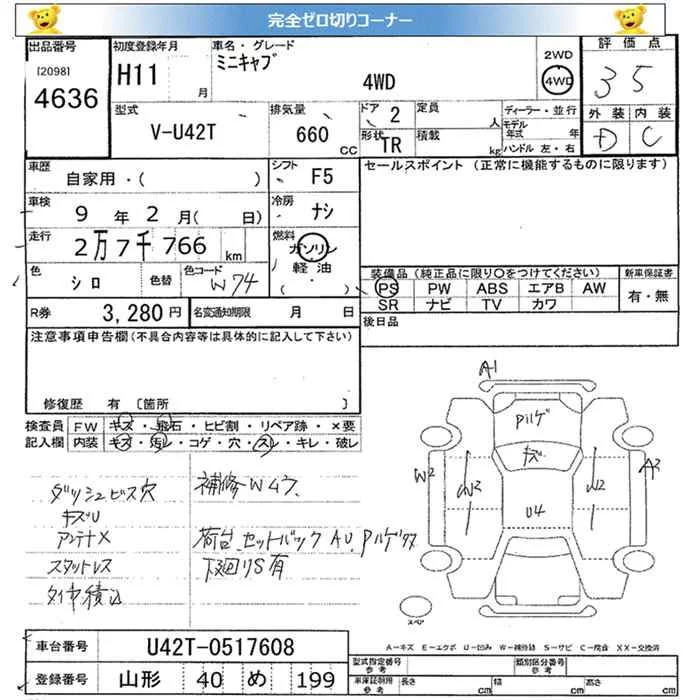 完全ゼロ切りコーナー
出品番号
[2098]
4636
初度登録年月
H11 月
車名・グレード
ミニキャブ
4WD
2WD
4WD
評価点
3 5
外装 内装
D C
型式
V-U42T
排気量
660 CC
ドア 2
形状 TR
定員 人
積載 kg
ディーラー・並行
モデル年式 年
ハンドル 左・右
車歴
自家用・( )
シフト F5
車検
9 年 2 月( 日)
冷房 ナシ
走行
2万7千766 km
燃料
ガソリン
軽油
( ・ )
色
シロ
色替
色コード
W74
R券 3,280円
名変通知期限 月 日
セールスポイント (正常に機能するものに限ります)
装備品(純正品に限り○をつけてください)
PS PW ABS エアB AW
SR ナビ TV カワ
新車保証書
有・無
後日品
注意事項申告欄(不具合内容等は具体的に記入して下さい)
修復歴 有 〔箇所 〕
検査員 FW キズ・飛石・ヒビ割・リペア跡・×要
記入欄 内装 キズ・汚レ・コゲ・穴・スレ・キレ・破レ
ダッシュビス穴
キズU
アンテナX
スタットレス
タイヤ積込
補修Wムラ
荷台、セットバックAU、Pハゲ
下廻りS有
A1
Pハゲ
キズ
W2
W2
U4
U2
A2
スペア
A−キズ E−エクボ U−凹み W−補修跡 S−サビ C−腐食 XX−交換済
車台番号 U42T-0517608
登録番号 山形 40 め 199
型式指定番号
参考
類別区分番号
参考
車庫証明用
参考
長さ cm
幅 cm
高さ cm